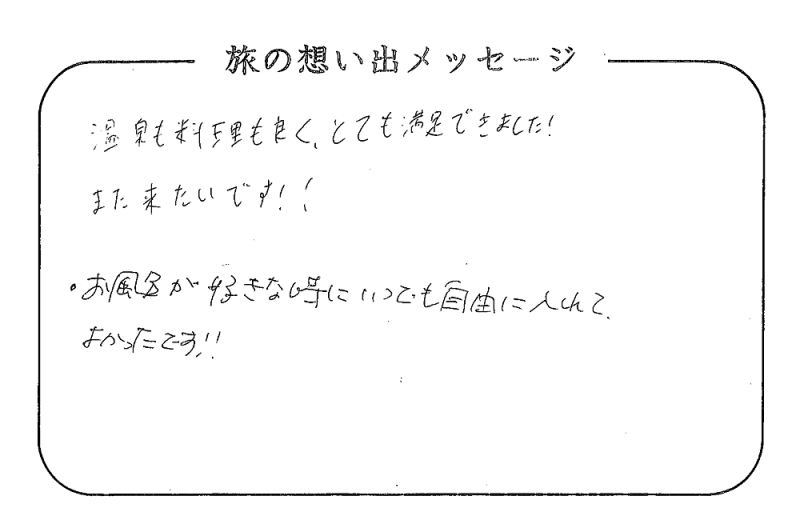 旅の想い出メッセージ
温泉も料理も良く、とても満足できました!
また来たいです!!
・お風呂が好きな時にいつでも自由に入れて、
よかったです!!